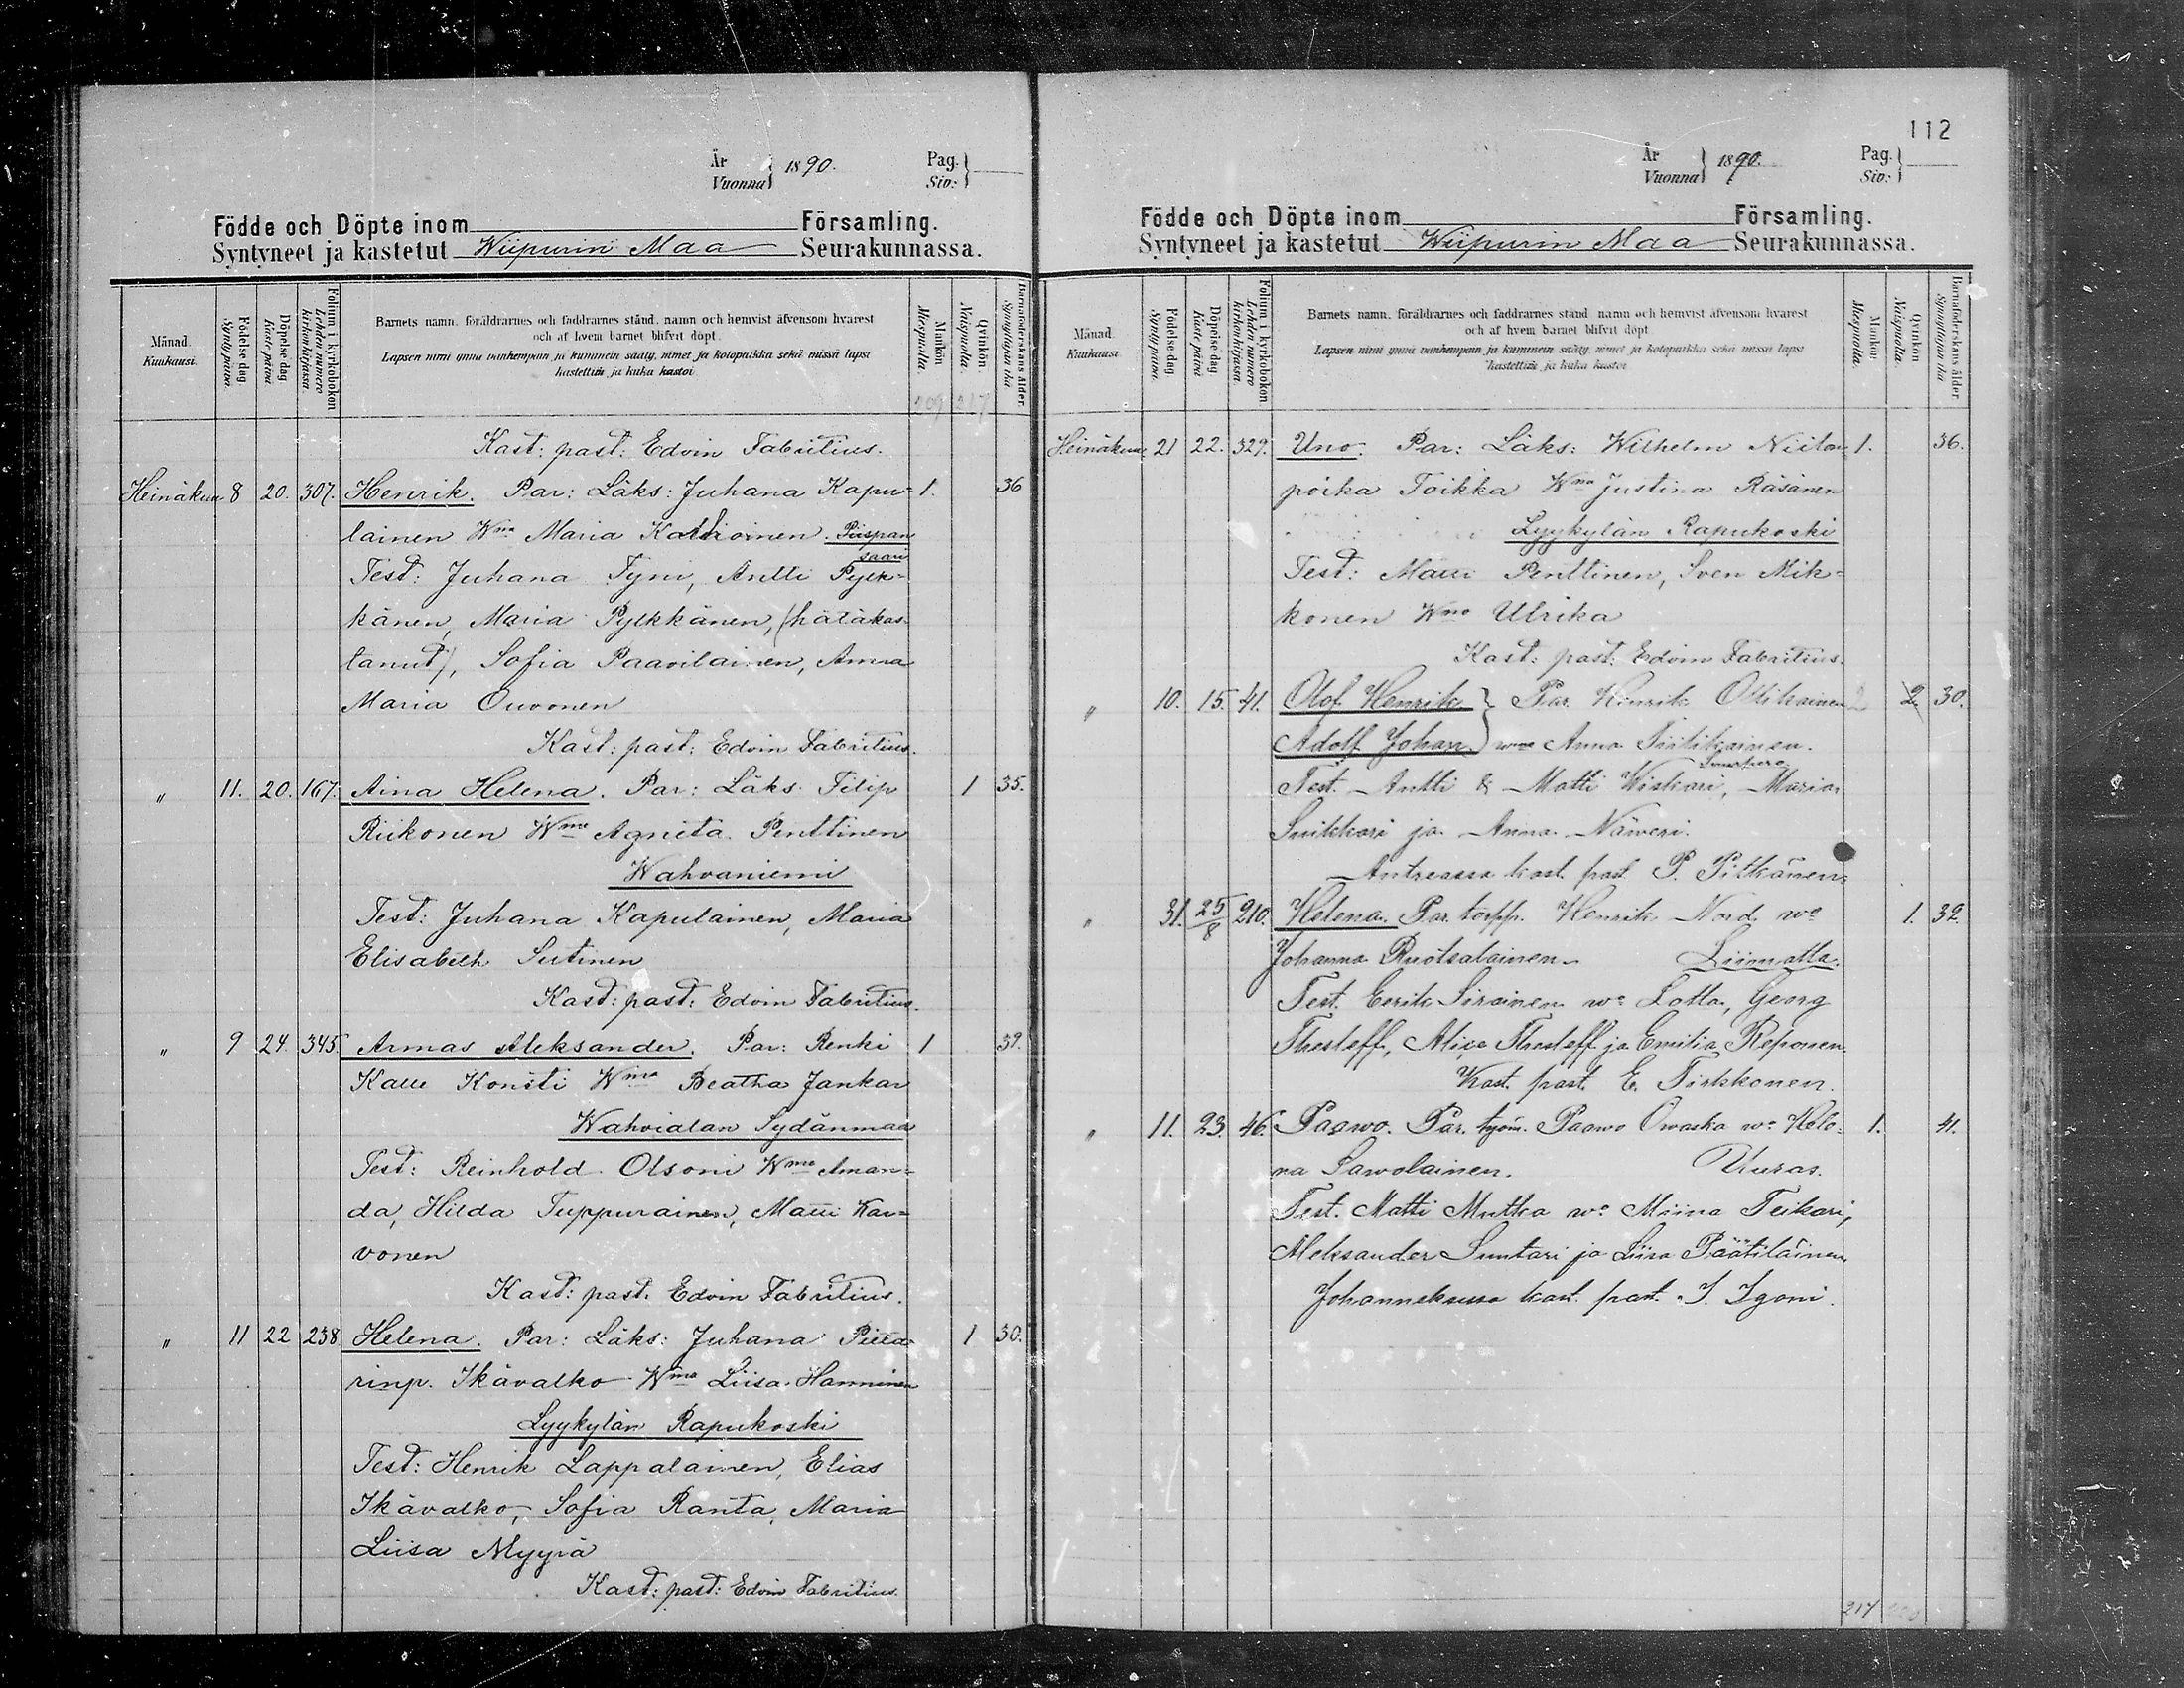 År
Vuonna } 1890.
Pag.
Siv: }
Födde och Döpte inom Församling.
Syntyneet ja kastetut Wiipurin Maa Seurakunnassa.
Månad. Kuukausi.
Födelse dag Syntypäivä.
Döpelse dag Kaste päivä
Folium i kyrkoboken Lehden numero kirkonkirjassa.
Barnets namn, föräldrarnes och faddrarnes stånd, namn och hemvist äfvensom hvarest
och af hvem barnet blifvit döpt.
Lapsen nimi ynnä vanhempain ja kummein sääty, nimet ja kotopaikka sekä missä lapsi
kastettiin ja kuka kastoi
Mankön Miespuolia.
Qvinkön Naispuolia.
Barnaföderskans ålder. Synnyttäjän ikä
Kast: past: Edvin Fabritius.
Heinäkuu 8 20. 307. Henrik. Par: Läks: Juhana Kapu- 1. 36
lainen Wmo Maria Piispan
saari
Test: Juhana Tyni, Antti Pylk-
känen, Maria Pylkkänen, (hätäkas-
tanut), Sofia Paavilainen, Anna
Maria Ouvonen
Kast: past: Edvin Fabritius.
" 11. 20. 167. Aina Helena. Par: Läks: Filip 1 35.
Riikonen Wmo Agneta Penttinen
Wahvaniemi
Test: Juhana Kapulainen, Maria
Elisabeth Sutinen
Kast: past: Edvin Fabritius.
" 9 24. 345 Armas Aleksander. Par: Renki 1 39.
Kalle Konsti Wmo Beatha Jankar
Wahvialan Sydänmaa
Test: Reinhold Olsoni Wmo Aman-
da, Hilda Tuppurainen, Matti Kar-
vonen
Kast: past: Edvin Fabritius.
" 11 22 238 Helena. Par: Läks: Juhana Pieta- 1 30.
rinp. Ikävalko Wmo Liisa Hanninen
Lyykylän Rapukoski
Test: Henrik Lappalainen, Elias
Ikävalko, Sofia Ranta, Maria
Liisa Myyrä
Kast: past: Edvin Fabritius.
112
År
Vuonna } 1890.
Pag.
Siv: }
Födde och Döpte inom Församling.
Syntyneet ja kastetut Wiipurin Maa Seurakunnassa.
Månad. Kuukausi.
Födelse dag Syntypäivä.
Döpelse dag Kaste päivä
Folium i kyrkoboken Lehden numero kirkonkirjassa.
Barnets namn, föräldrarnes och faddrarnes stånd, namn och hemvist äfvensom hvarest
och af hvem barnet blifvit döpt
Lapsen nimi ynnä vanhempain ja kummein sääty, nimet ja kotopaikka sekä missä lapsi
kastettiin ja kuka kastoi
Mankön Miespuolia.
Qvinkön Naispuolia.
Barnaföderskans ålder Synnyttäjän ikä
Heinäkuu 21 22. 329. Uno. Par: Läks: Wilhelm Niilon- 1. 36.
poika Toikka Wmo Justina Räsänen
Lyykylän Rapukoski
Test: Matti Penttinen, Sven Mik-
konen Wmo Ulrika
Kast: past: Edvin Fabritius.
" 10. 15. 41. Olof Henrik } Par. Henrik Ollikainen 2 2. 30.
Adolf Johan } wmo Anna Tiilikainen.
Test. Antti & Matti Wiskari, Maria
Suikkari ja Anna Näweri.
Antreassa kast. past. P. Pitkänen.
" 31. 25/8 210. Helena. Par. torpp. Henrik Nord wo 1. 32.
Johanna Ruotsalainen. Liimatta.
Test. Eerik Siroinen wo Lotta, Georg
Thesleff, Alice Thesleff ja Emilia Reponen.
Kast. past. E. Tirkkonen.
" 11. 23. 46. Paawo. Par. työm. Paawo Owaska wo Hele- 1. 41.
na Sawolainen. Kuras.
Test. Matti Mutka wo Miina Teikari,
Aleksander Suntari ja Liisa Päätiläinen.
Johanneksessa kast. past. J. Igoni.
217